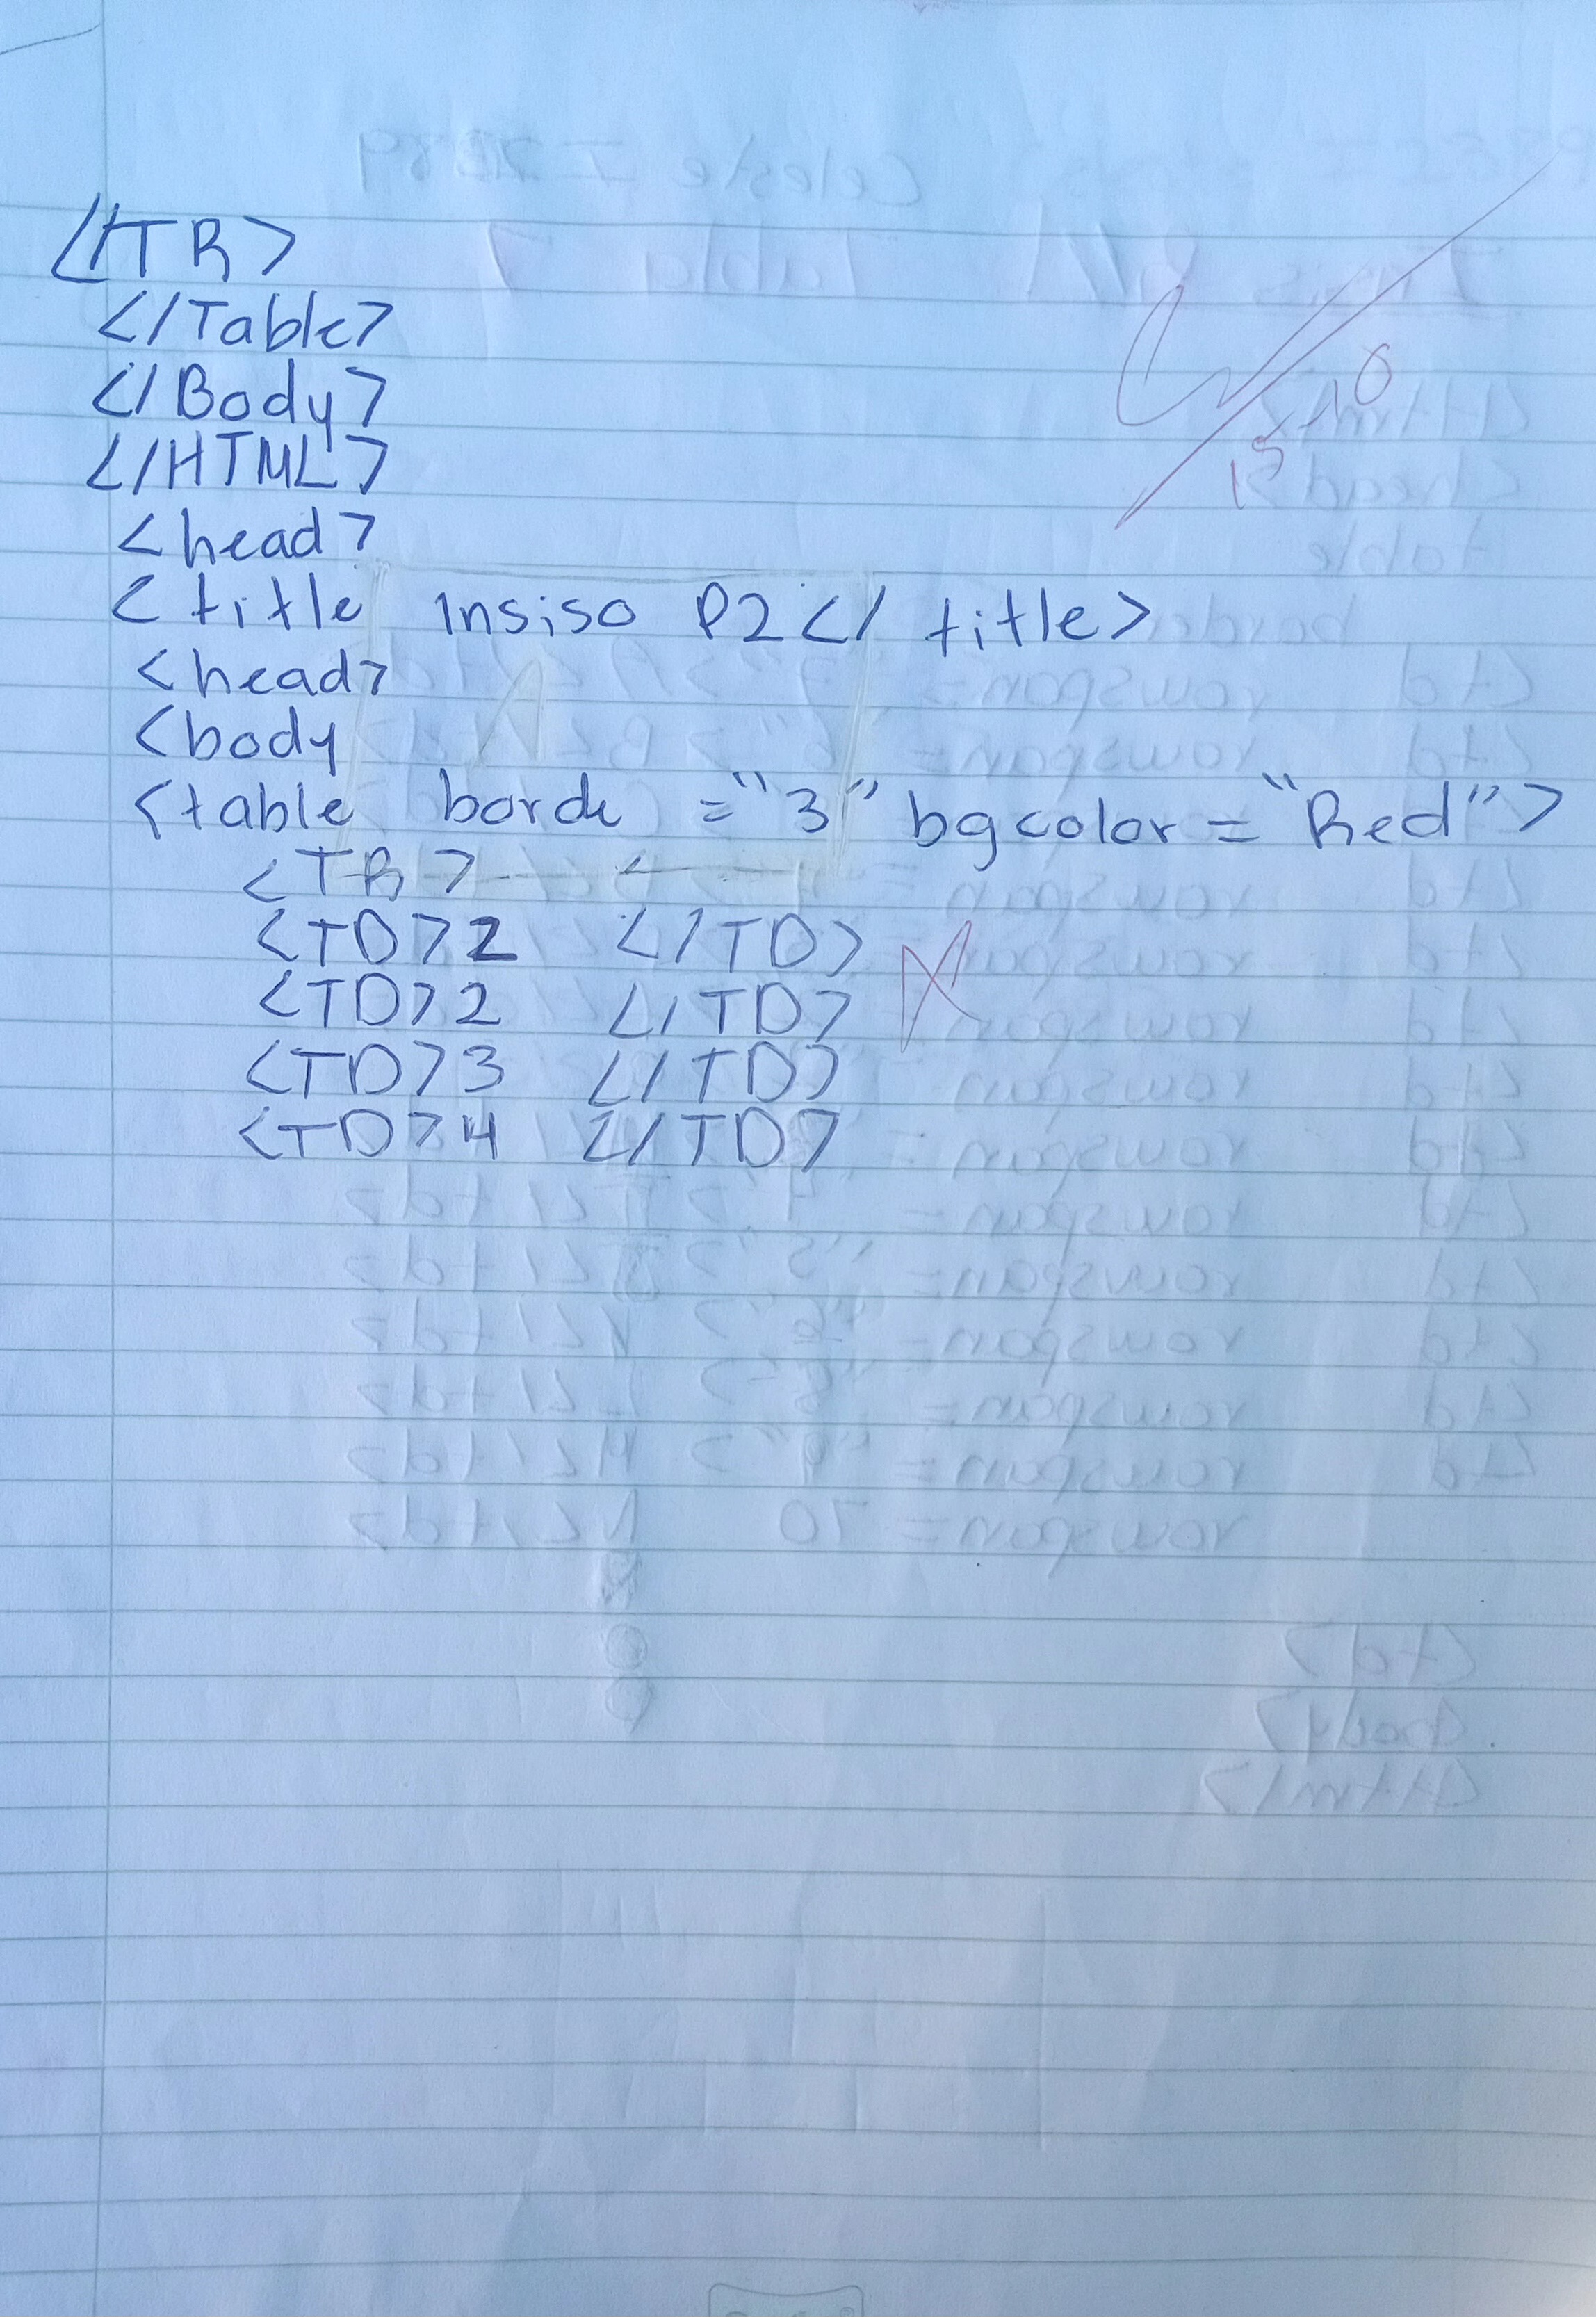 </TR>
</Table>
</Body>
</HTML>
<head>
<title Insiso P2</ title>
<head>
<body
<table borde ="3" bgcolor = "Red">
<TR>
<TD>2 </TD>
<TD>2 </TD>
<TD>3 </TD>
<TD>4 </TD>